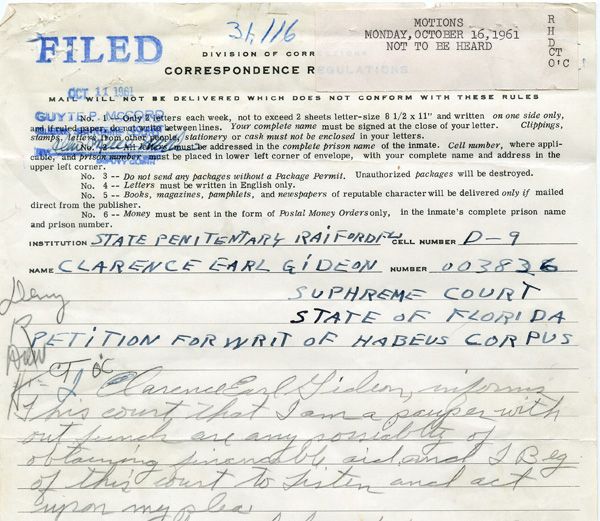 31,116
MOTIONS
MONDAY, OCTOBER 16, 1961
NOT TO BE HEARD
R
H
D
CT
O'C
FILED
OCT 11 1961
GUYTE P. McCORD
DIVISION OF CORRECTIONS
CORRESPONDENCE REGULATIONS
MAIL WILL NOT BE DELIVERED WHICH DOES NOT CONFORM WITH THESE RULES
No. 1 -- Only 2 letters each week, not to exceed 2 sheets letter-size 8 1/2 x 11" and written on one side only,
and if ruled paper, do not write between lines. Your complete name must be signed at the close of your letter. Clippings,
stamps, letters from other people, stationery or cash must not be enclosed in your letters.
No. 2 -- All must be addressed in the complete prison name of the inmate. Cell number, where appli-
cable, and prison number must be placed in lower left corner of envelope, with your complete name and address in the
upper left corner.
No. 3 -- Do not send any packages without a Package Permit. Unauthorized packages will be destroyed.
No. 4 -- Letters must be written in English only.
No. 5 -- Books, magazines, pamphlets, and newspapers of reputable character will be delivered only if mailed
direct from the publisher.
No. 6 -- Money must be sent in the form of Postal Money Orders only, in the inmate's complete prison name
and prison number.
INSTITUTION STATE PENITENTARY RAIFORD FLA CELL NUMBER D-9
NAME CLARENCE EARL GIDEON NUMBER 003826
SUPHREME COURT
STATE OF FLORIDA
PETITION FOR WRIT OF HABEUS CORPUS
Deny
R
Drew
CT O'C
H- I, Clarence Earl Gideon, informs
This court that I am a pauper with
out funds are any possiablity of
obtaining financable aid and I Beg
of this court to listen and act
upon my plea